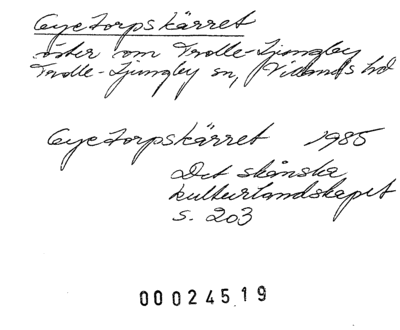 Gyetorpskärret
öster om Trolle-Ljungby
Trolle-Ljungby sn, Villands hd
Gyetorpskärret 1985
Det skånska
kulturlandskapet
s. 203
000245 19